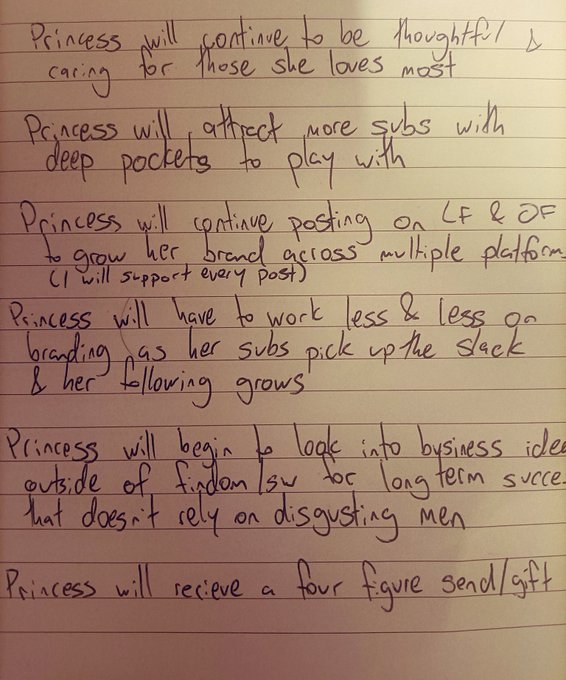 Princess will continue to be thoughtful &
caring for those she loves most
Princess will attract more subs with
deep pockets to play with
Princess will continue posting on LF & OF
to grow her brand across multiple platform
(I will support every post)
Princess will have to work less & less on
branding as her subs pick up the slack
& her following grows
Princess will begin to look into bysiness idee
outside of findom/sw for long term succe
that doesn't rely on disgusting men
Princess will recieve a four figure send/gift